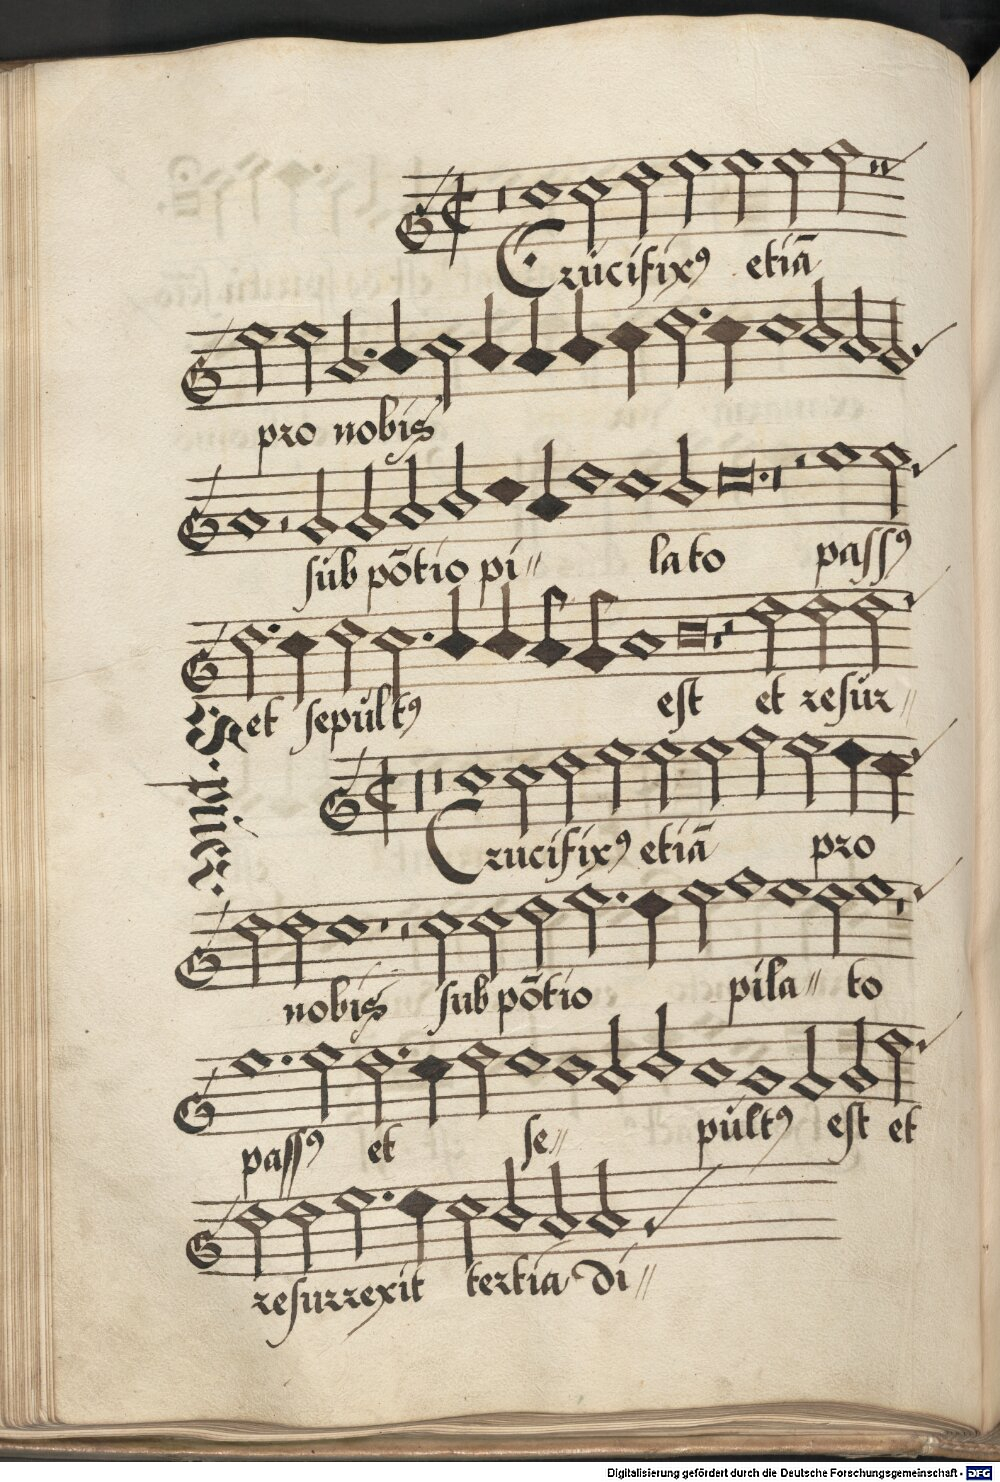 Crucifixꝰ etiā
pro nobis
sub pōtio pi〃 lato passꝰ
et sepultꝰ est et resur〃
Crucifixꝰ etiā pro
nobis sub pōtio pila〃 to
passꝰ et se〃 pultꝰ est et
resurrexit tertia di〃
Digitalisierung gefördert durch die Deutsche Forschungsgemeinschaft - DFG